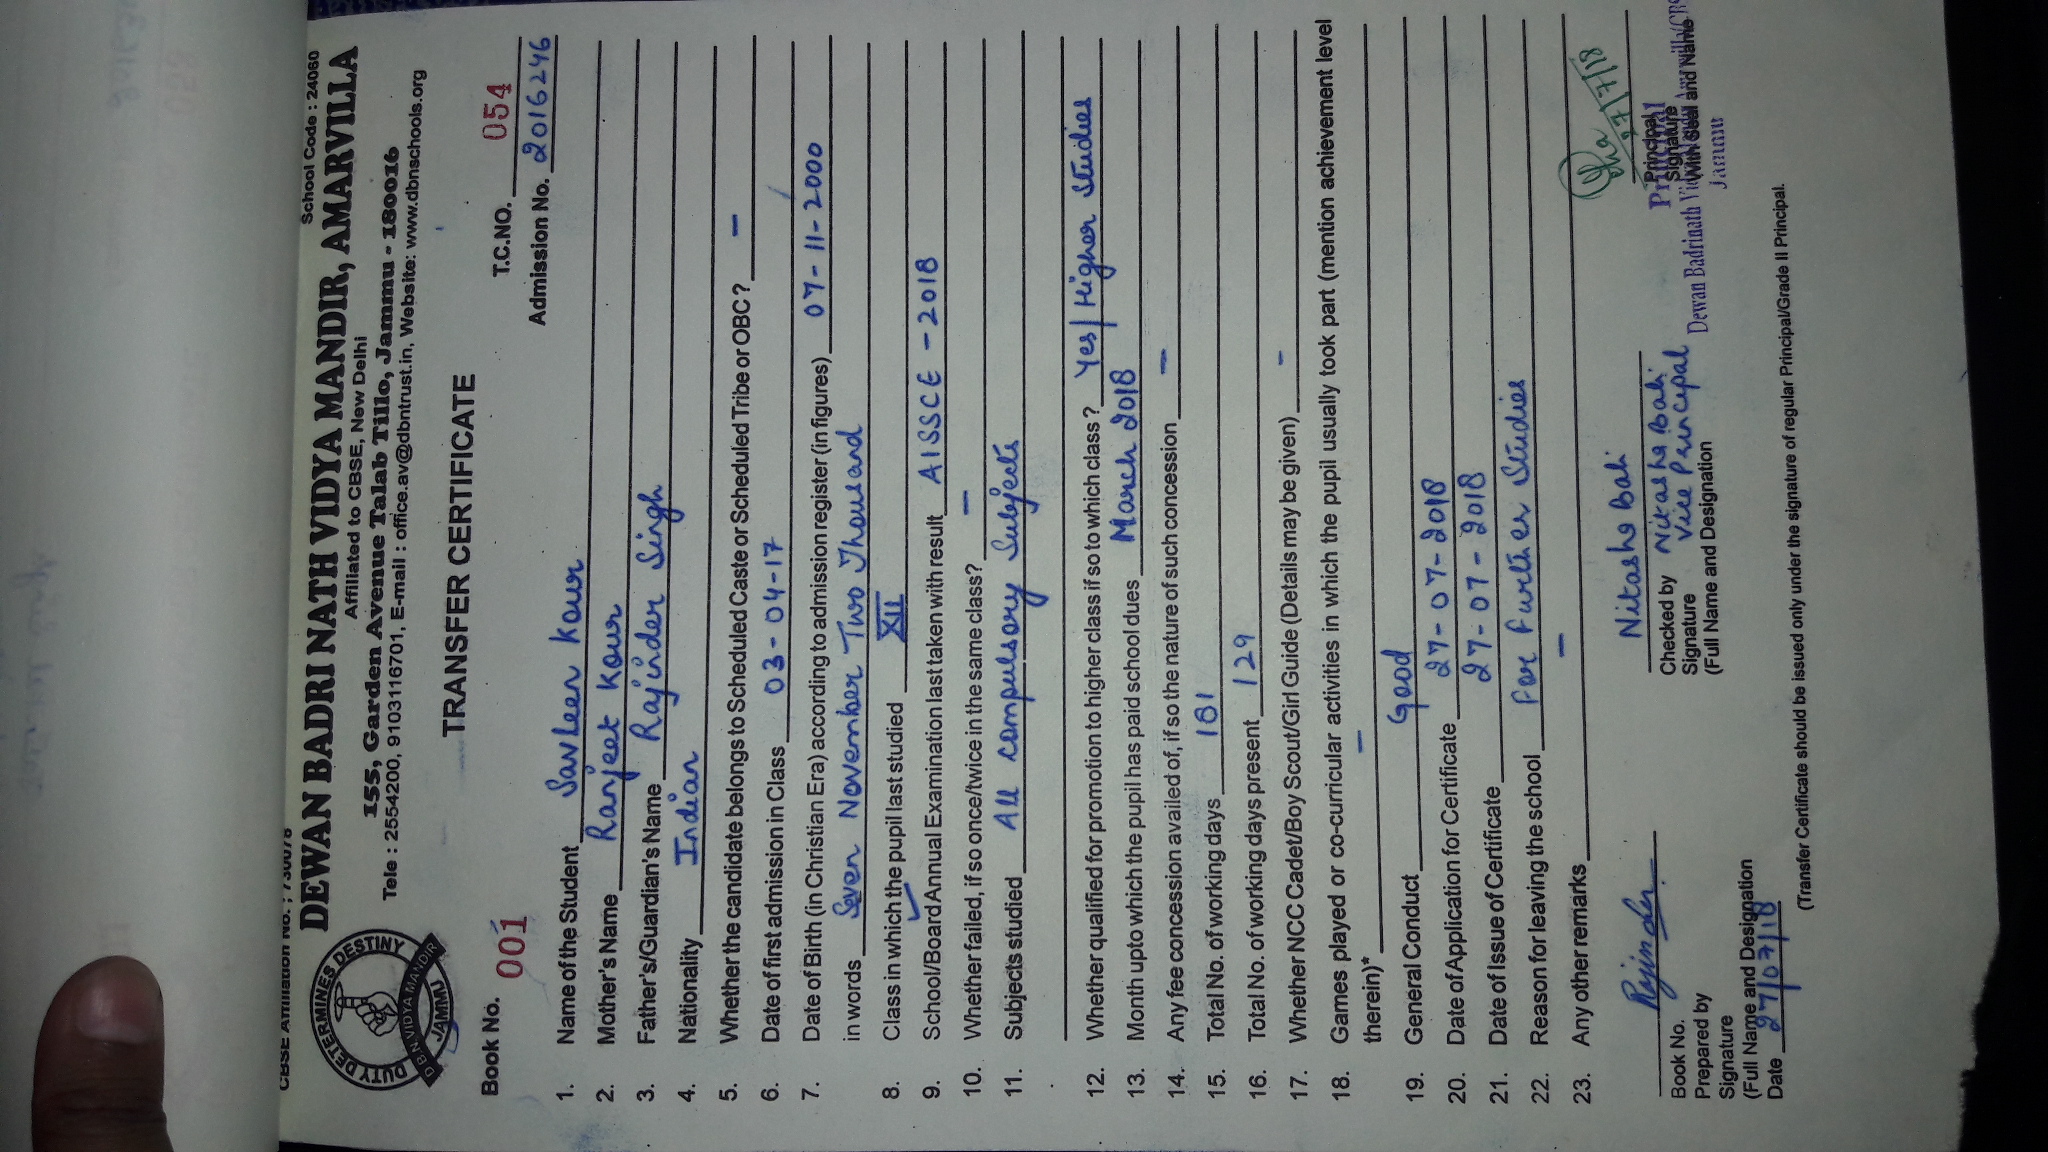 CBSE Affiliation No. : 730078 School Code : 24060
DEWAN BADRI NATH VIDYA MANDIR, AMARVILLA
Affiliated to CBSE, New Delhi
155, Garden Avenue Talab Tillo, Jammu - 180016
Tele : 2554200, 9103116701, E-mail : office.av@dbntrust.in, Website: www.dbnschools.org
DUTY DETERMINES DESTINY
D B N VIDYA MANDIR
JAMMU
TRANSFER CERTIFICATE
Book No. 001 T.C.NO. 054
Admission No. 2016246
1. Name of the Student Savleen Kour
2. Mother's Name Ranjeet Kour
3. Father's/Guardian's Name Rajinder Singh
4. Nationality Indian
5. Whether the candidate belongs to Scheduled Caste or Scheduled Tribe or OBC ? -
6. Date of first admission in Class 03-04-17
7. Date of Birth (in Christian Era) according to admission register (in figures) 07-11-2000
in words Seven November Two Thousand
8. Class in which the pupil last studied XII
9. School/Board Annual Examination last taken with result AISSCE - 2018
10. Whether failed, if so once/twice in the same class? -
11. Subjects studied All compulsory Subjects
12. Whether qualified for promotion to higher class if so to which class ? Yes/Higher Studies
13. Month upto which the pupil has paid school dues March 2018
14. Any fee concession availed of, if so the nature of such concession -
15. Total No. of working days 181
16. Total No. of working days present 129
17. Whether NCC Cadet/Boy Scout/Girl Guide (Details may be given) -
18. Games played or co-curricular activities in which the pupil usually took part (mention achievement level
therein)* -
19. General Conduct Good
20. Date of Application for Certificate 27-07-2018
21. Date of Issue of Certificate 27-07-2018
22. Reason for leaving the school For Further Studies
23. Any other remarks -
Rajinder Nitasha Bali 27/7/18
Book No. Checked by Nitasha Bali Principal
Prepared by Signature Vice Principal Signature
Signature (Full Name and Designation) With Seal and Name
(Full Name and Designation
Date 27/07/18
Principal
Dewan Badrinath
Jammu
(Transfer Certificate should be issued only under the signature of regular Principal/Grade II Principal.